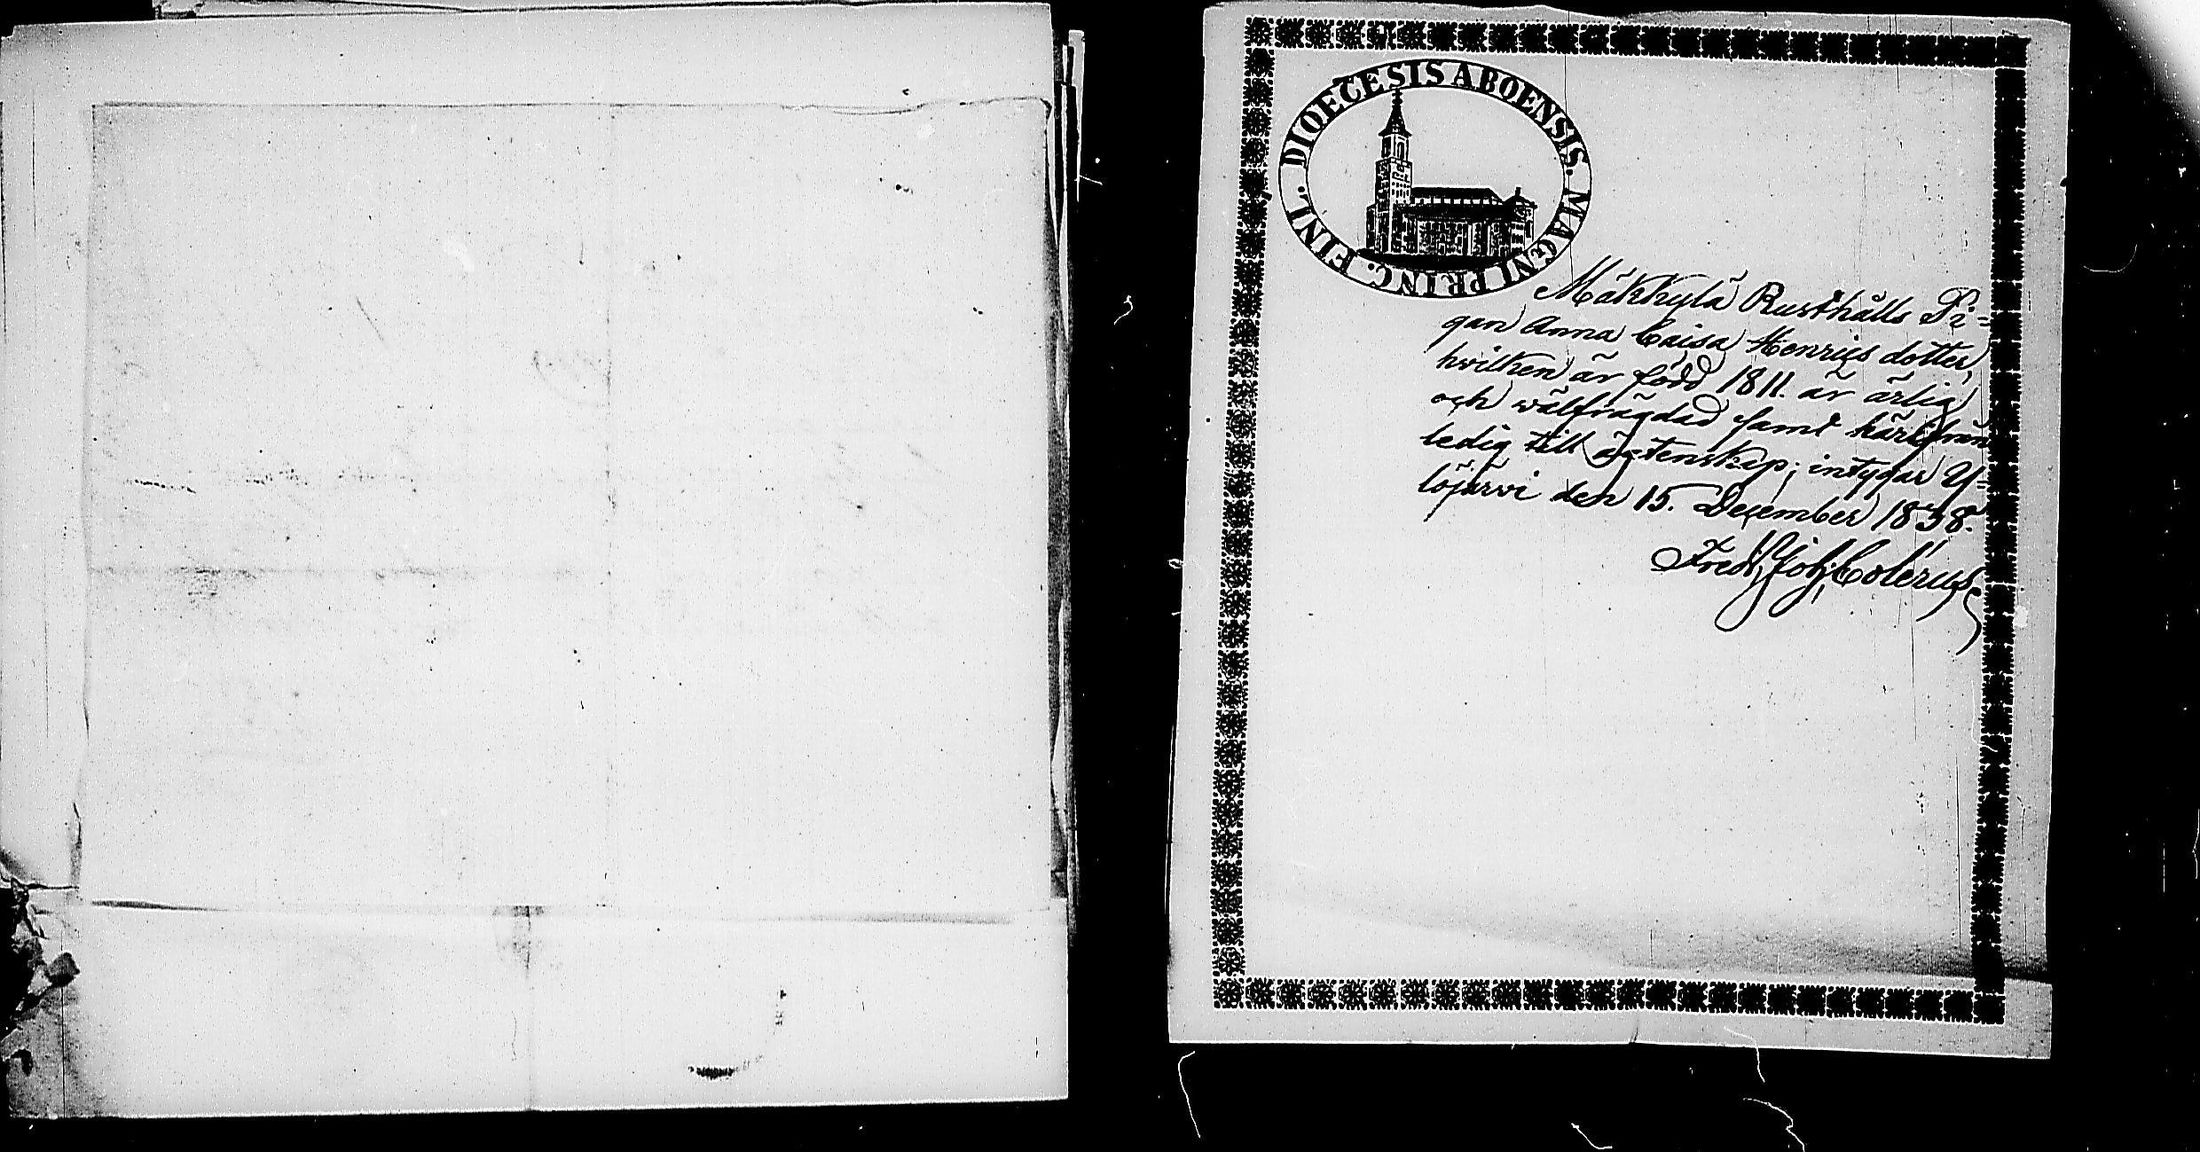 DIOECESIS ABOENSIS. MAGNI PRINC. FINL.
Mäkkylä Rusthålls Pi=
gan Anna Caisa Henrics dotter,
hvilken är född 1811. är ärlig
och wälfrägdad samt härifrån
ledig till ägtenskap; intygar Y=
löjärvi den 15. December 1838.
Fredr, Joh, Colerus